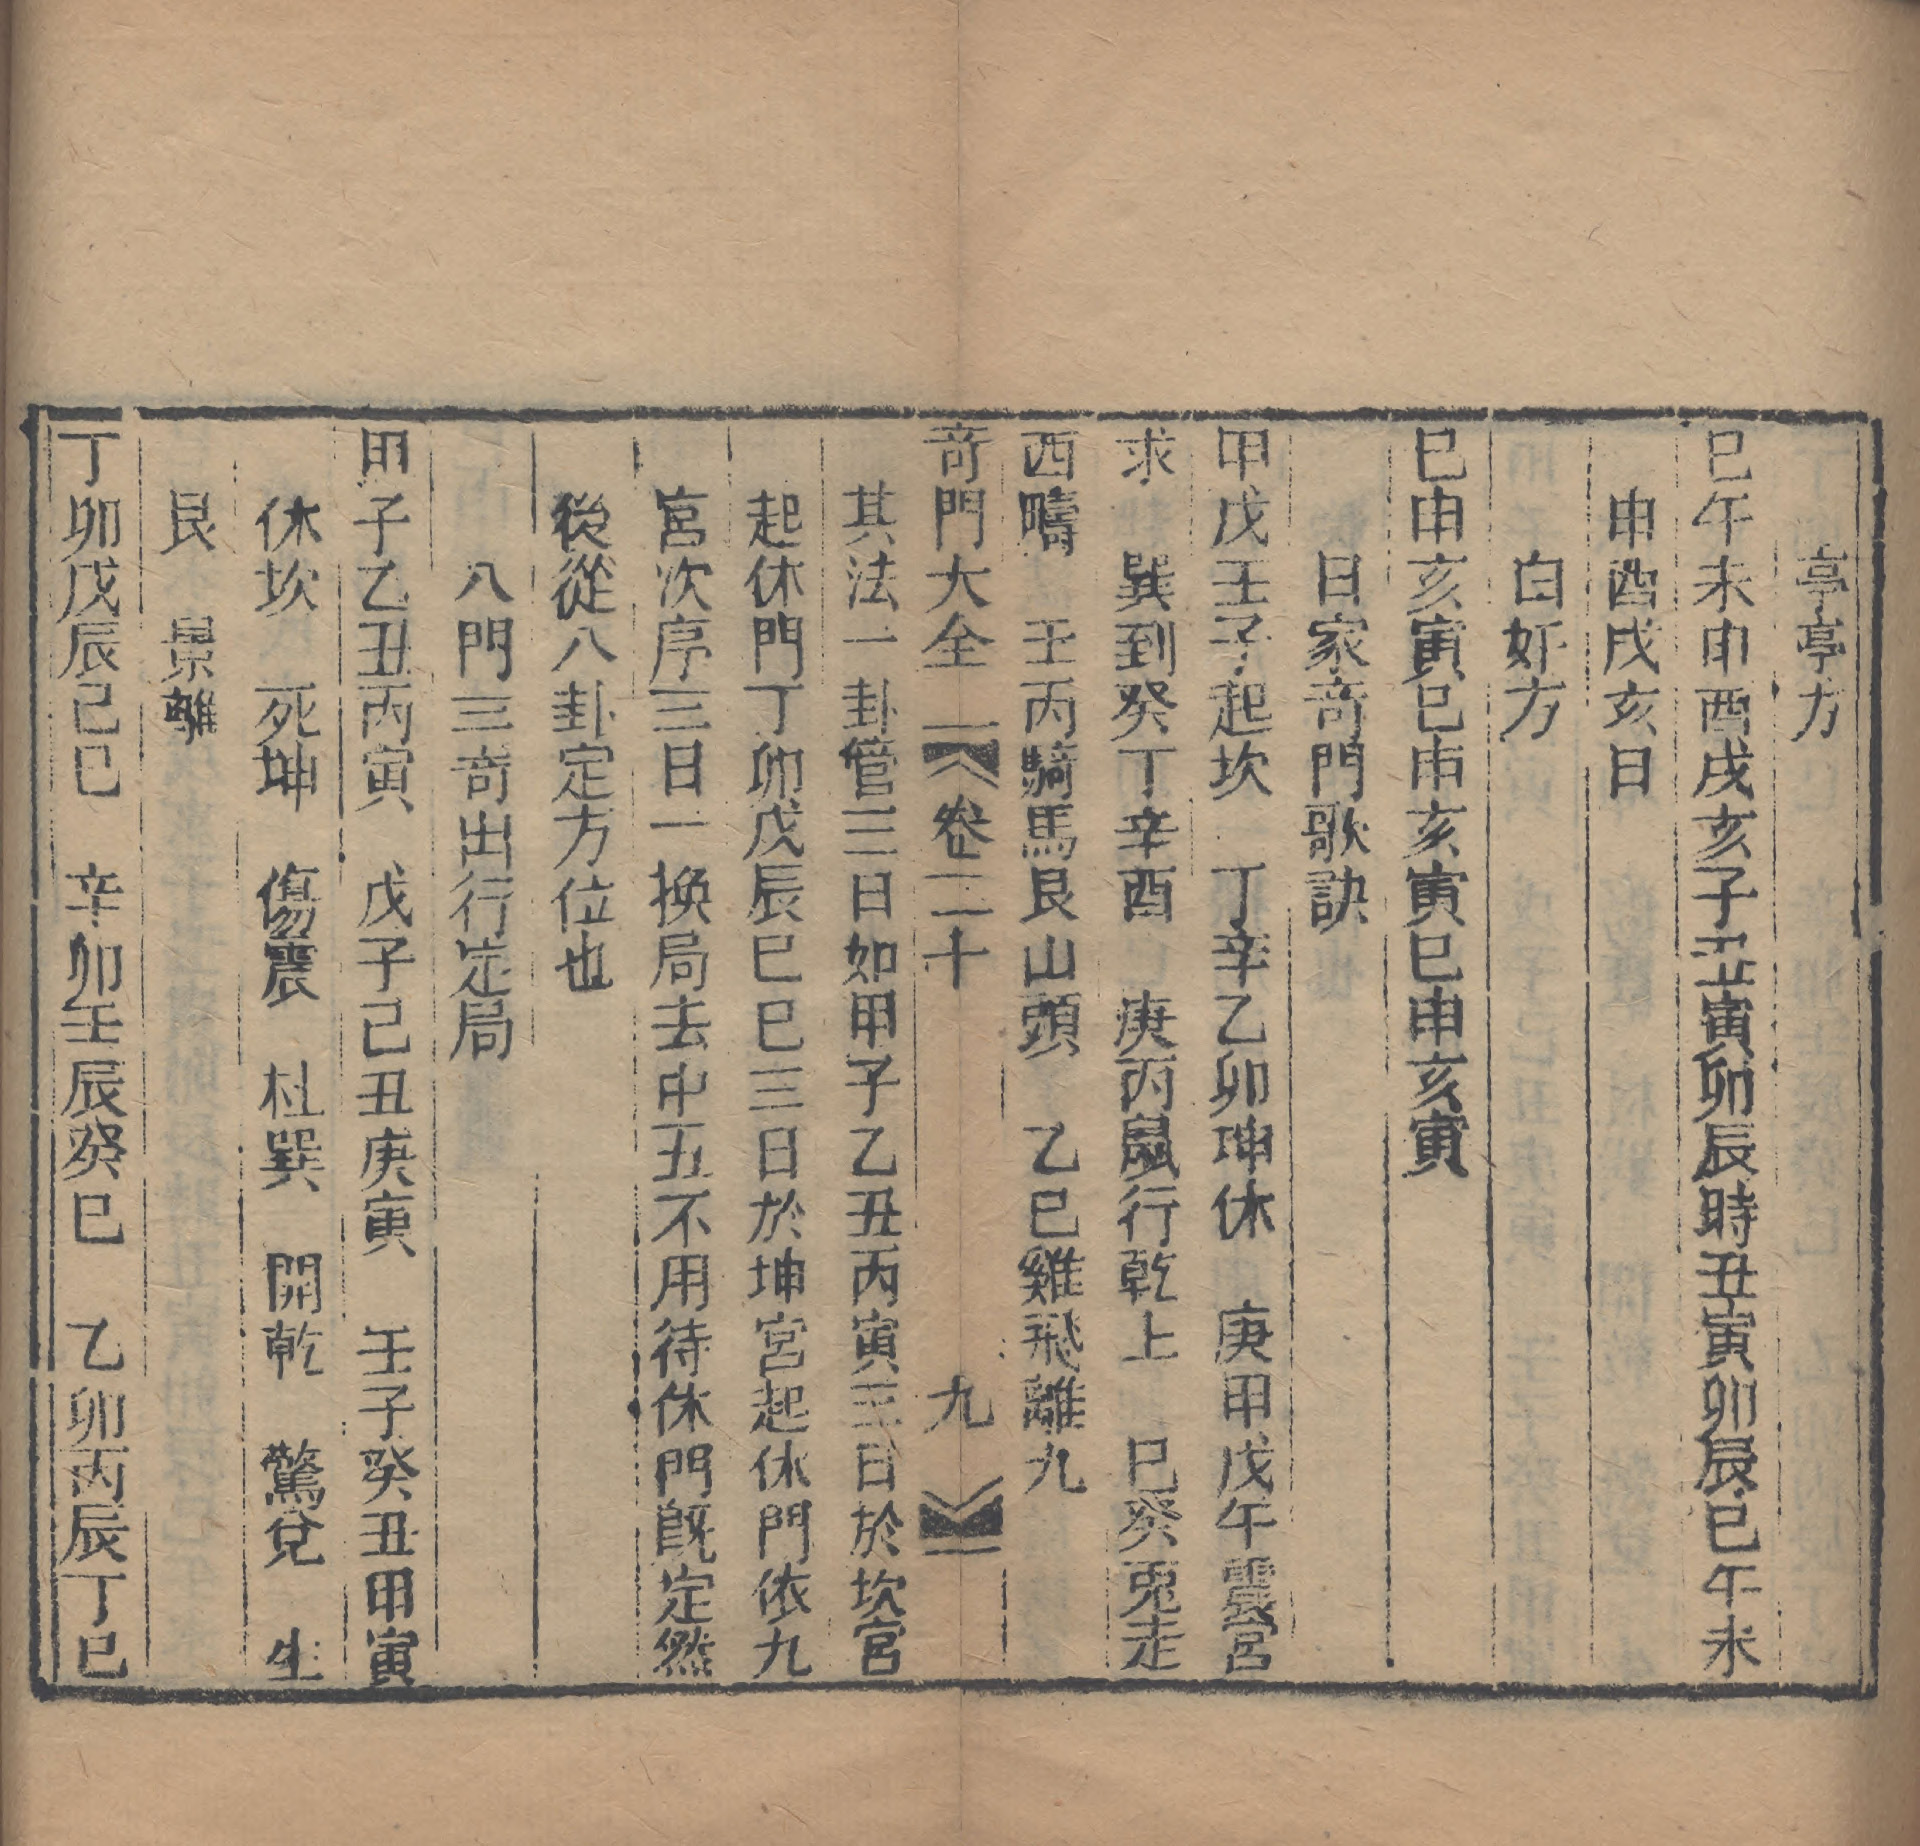 亭亭方
巳午未申酉戌亥子丑寅卯辰時丑寅卯辰巳午未
申酉戌亥日
白奸方
巳申亥寅巳申亥寅巳申亥寅
日家奇門歌訣
甲戊壬子起坎　丁辛乙卯坤休　庚甲戊午震宮
求　巽到癸丁辛酉　庚丙鼠行乾上　巳癸兎走
西疇　壬丙騎馬艮山頭　乙巳雞飛離九
奇門大全　卷二十　九
其法一卦管三日如甲子乙丑丙寅三日於坎宮
起休門丁卯戊辰巳巳三日於坤宮起休門依九
宮次序三日一換局去中五不用待休門旣定然
後從八卦定方位也
八門三奇出行定局
甲子乙丑丙寅　戊子己丑庚寅　壬子癸丑甲寅
休坎　死坤　傷震　杜巽　開乾　驚兌　生
艮　景離
丁卯戊辰己巳　辛卯壬辰癸巳　乙卯丙辰丁巳